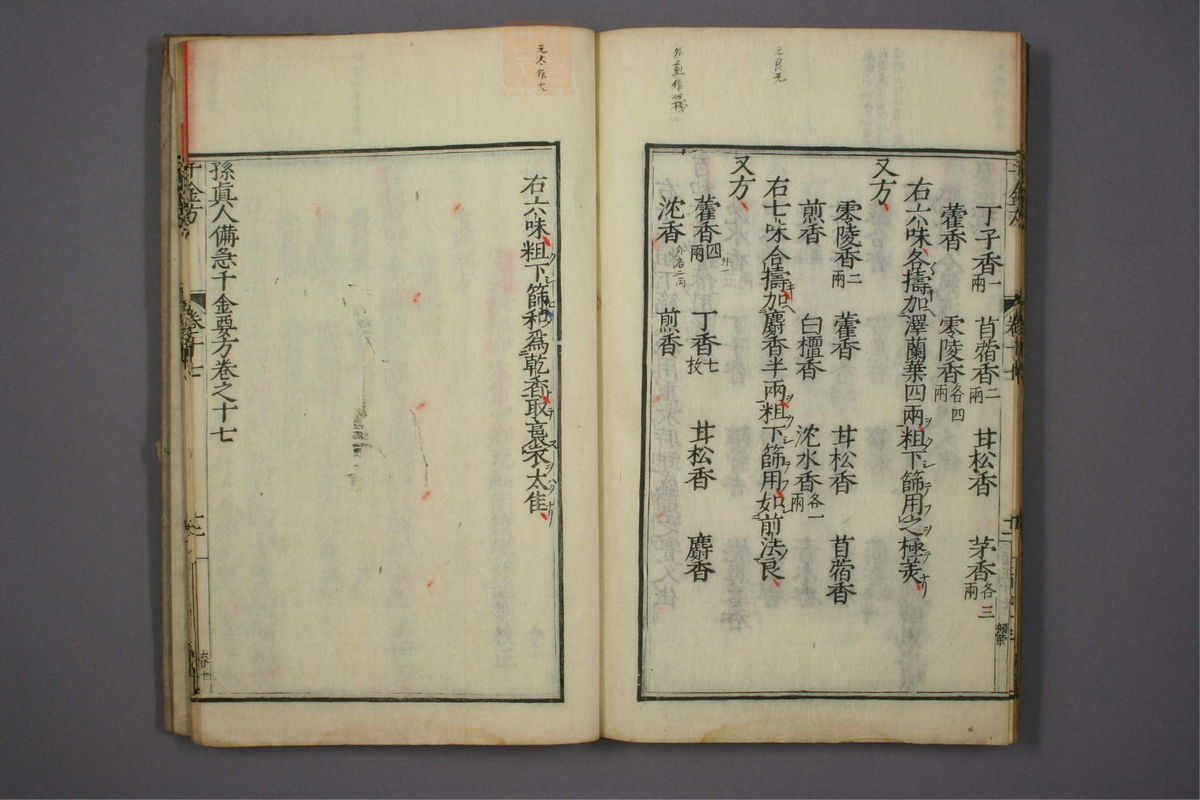 元良光
丁子香一兩 苜蓿香二兩 甘松香 茅香各三兩
藿香 零陵香各四兩
右六味各擣加澤蘭葉四兩粗下篩用之極美
又方
零陵香二兩 藿香 甘松香 苜蓿香
煎香 白檀香 沈水香各一兩
右七味合擣加麝香半兩粗下篩用如前法良
又方
藿香四兩 丁香七枚 甘松香 麝香
外一
沈香 煎香
外各二兩
元太作大
右六味粗下篩和爲乾香取裛衣太佳
孫眞人備急千金要方卷之十七
千金方